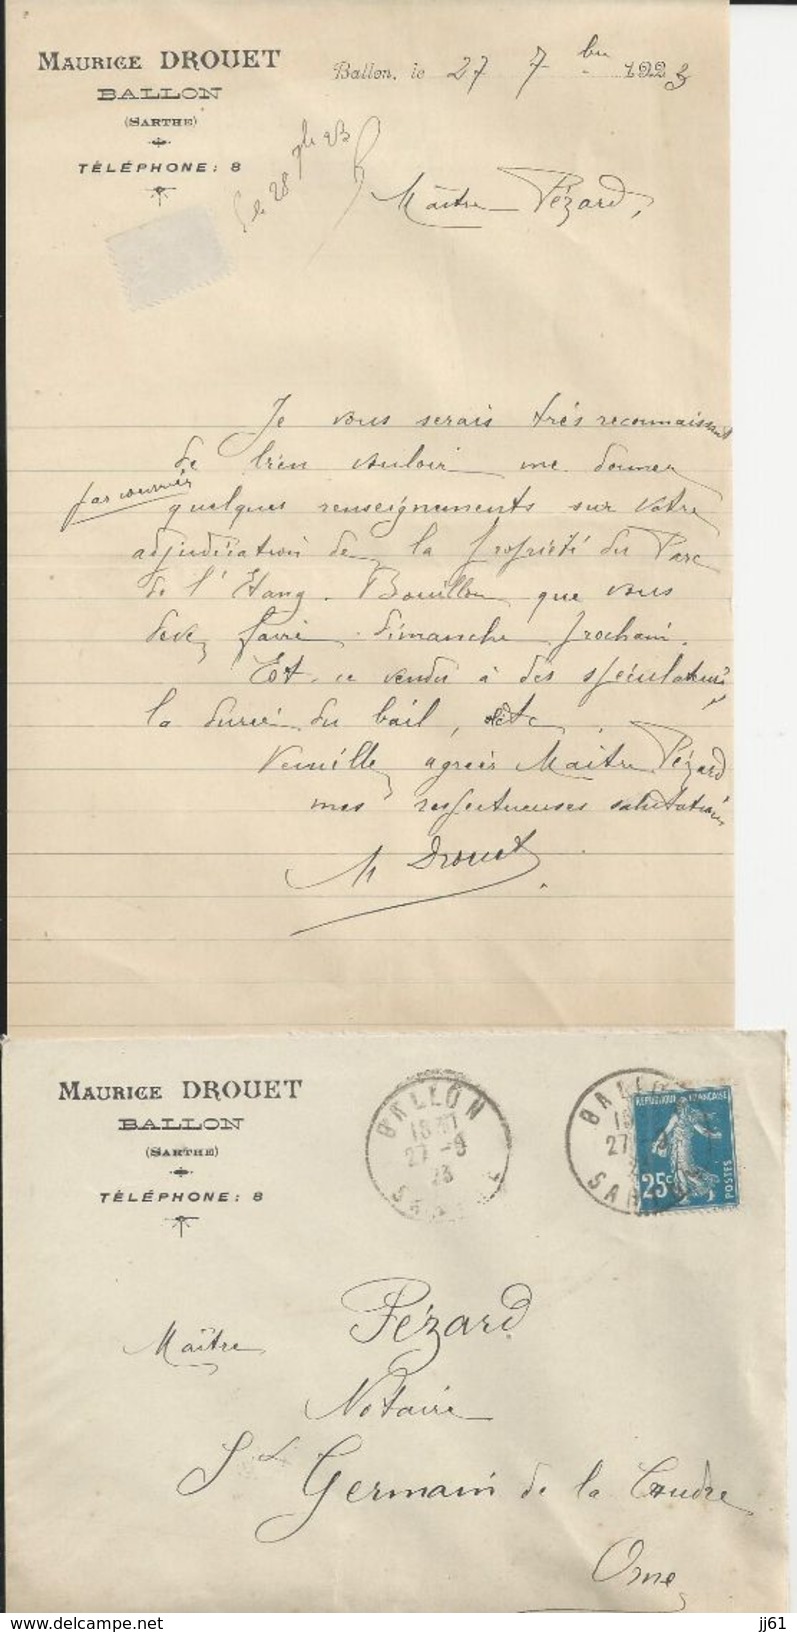 MAURICE DROUET
BALLON
(SARTHE)
TÉLÉPHONE: 8
Ballon, le 27 7bre 1923
le 28 7bre 23
Maître Pézard,
Je vous serais très reconnaissant
de bien vouloir me donner
par courrier
quelques renseignements sur votre
adjudication de la propriété du Parc
de l'Etang. Bouillon que vous
devez faire dimanche prochain.
Est-ce vendu à des spéculateurs
la durée du bail, etc.
Veuillez agréer Maître Pézard
mes respectueuses salutations
M Drouet
MAURICE DROUET
BALLON
(SARTHE)
TÉLÉPHONE: 8
BALLON
27 -9
23
SARTHE
BALLON
27
SAR
REPUBLIQUE FRANÇAISE
25c
POSTES
Maître Pézard
Notaire
St Germain de la Coudre
Orne
jj61